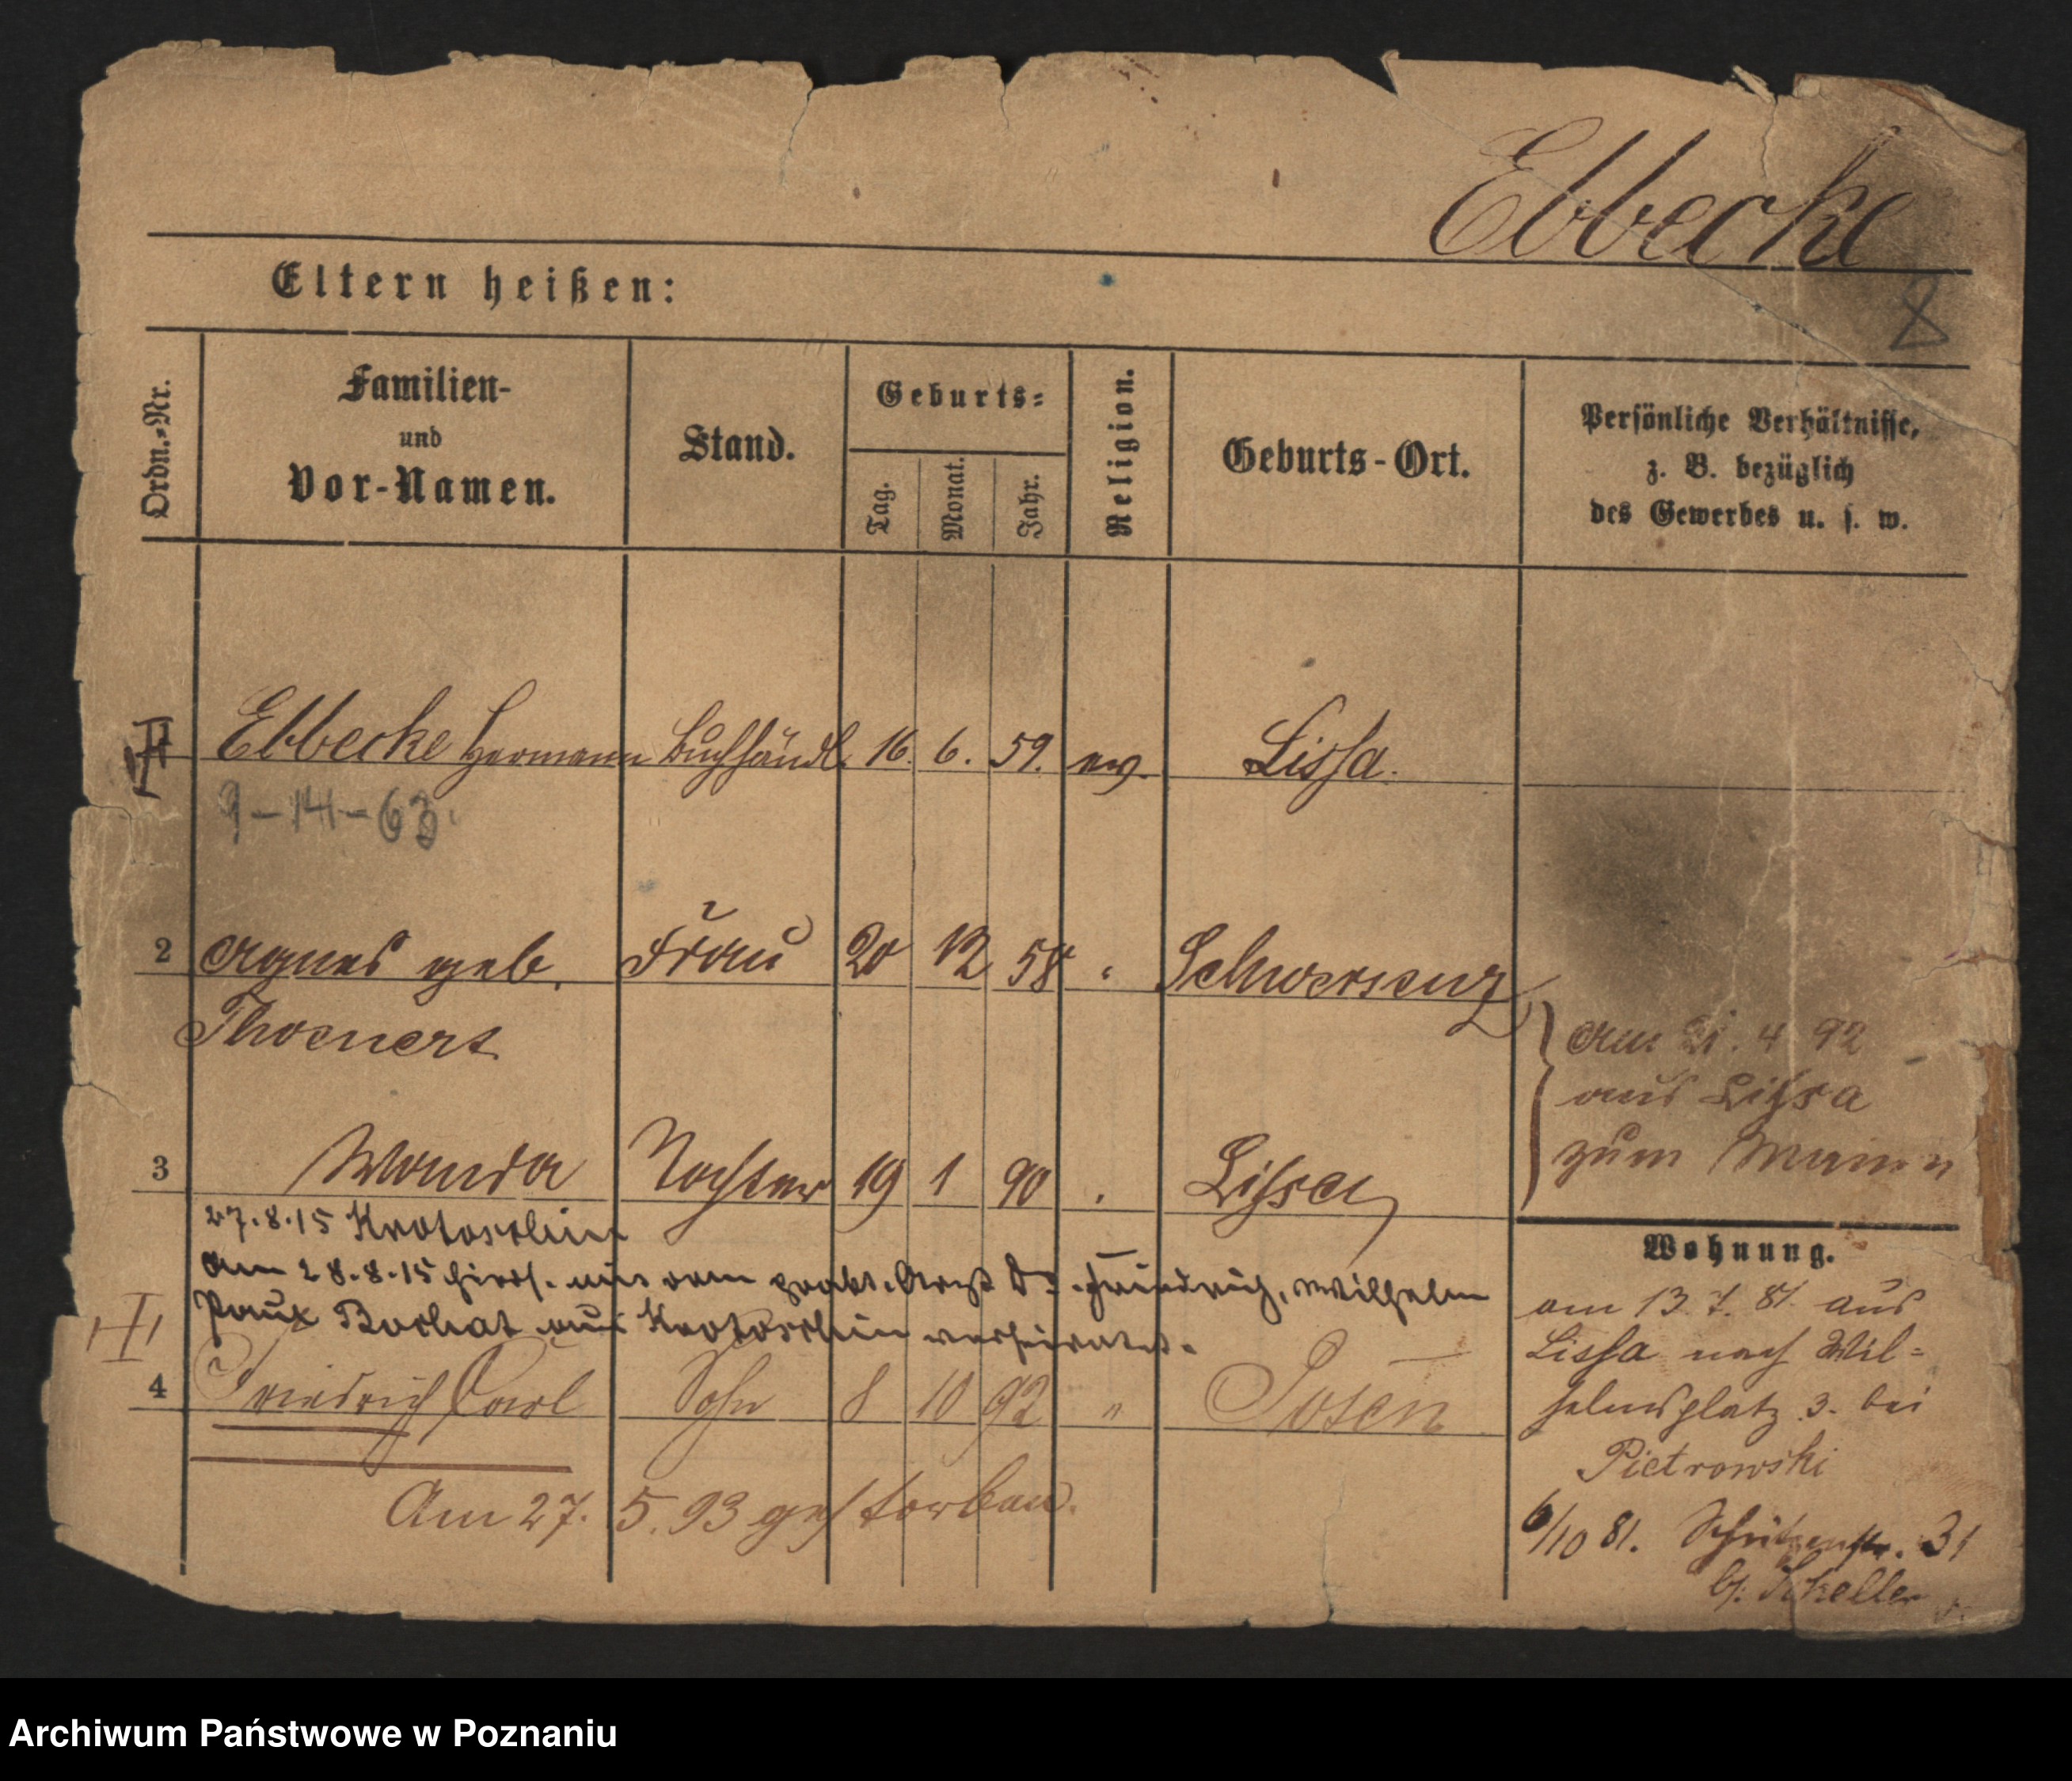 Ebbecke
8
Eltern heißen:
Ordn.-Nr.
Familien-
und
Vor-Namen.
Stand.
Geburts-
Tag.
Monat.
Jahr.
Religion.
Geburts-Ort.
Persönliche Verhältnisse,
z. B. bezüglich
des Gewerbes u. s. w.
Ebbecke Hermann Buchhändl. 16. 6. 59. ev. Lissa.
9-14-63.
2 Agnes geb. Frau 20 12 58 " Schwersenz
Thoenert
am 21. 4 92
aus Lissa
zum Mann
3 Wanda Tochter 19 1 90 " Lissa
27.8.15 Krotoschin
Am 28.8.15 hiers. mit dem prakt. Arzt Dr. Friedrich, Wilhelm
Paul aus Krotoschin verheiratet.
4 Friedrich Carl Sohn 8 10 92 " Posen
Am 27. 5. 93 gestorben.
Wohnung.
am 13. 7. 81. aus
Lissa nach Wil-
helmsplatz 3. bei
Pietrowski
6/10 81. Schützenstr. 31
b. Scheller
Archiwum Państwowe w Poznaniu